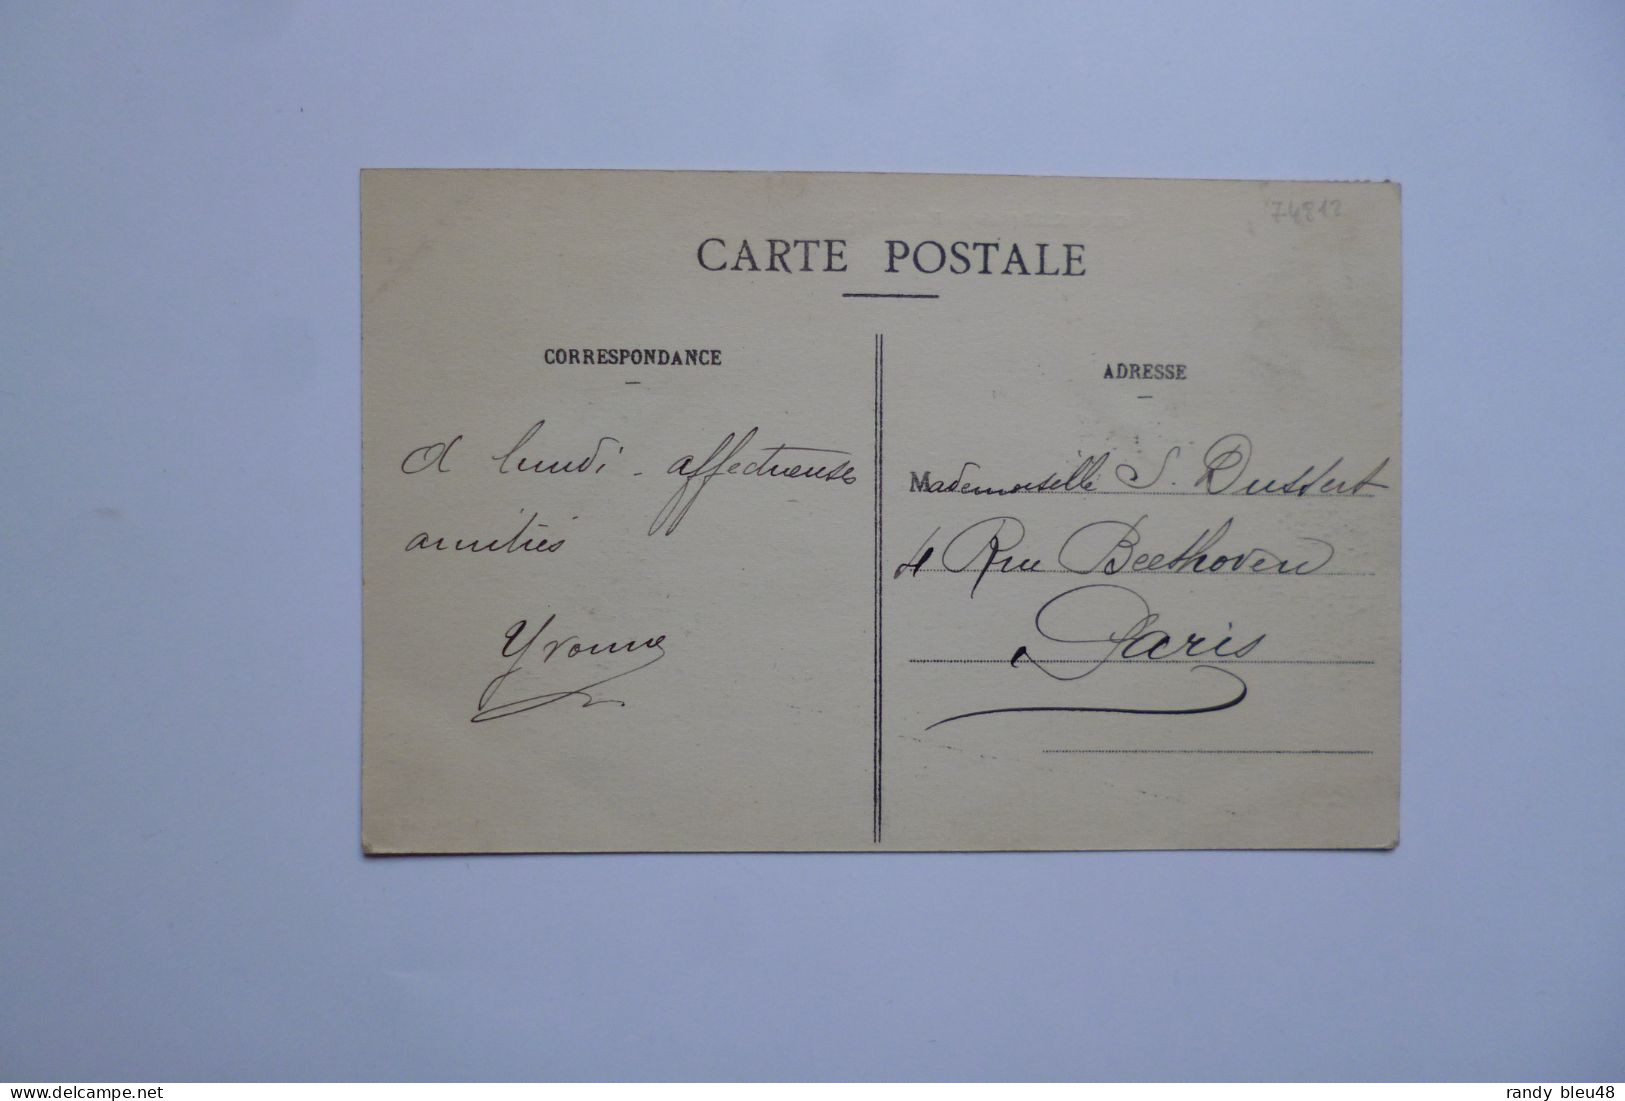 74812
CARTE POSTALE
CORRESPONDANCE
A lundi - affectueuses
amitiés
Yvonne
ADRESSE
Mademoiselle S. Dussert
4 Rue Beethoven
Paris
www.delcampe.net
randy bleu48